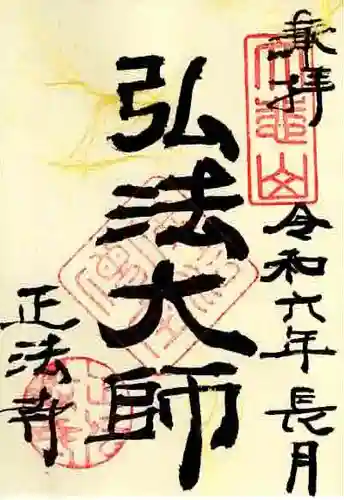 奉拝
令和六年長月
弘法大師
正法寺